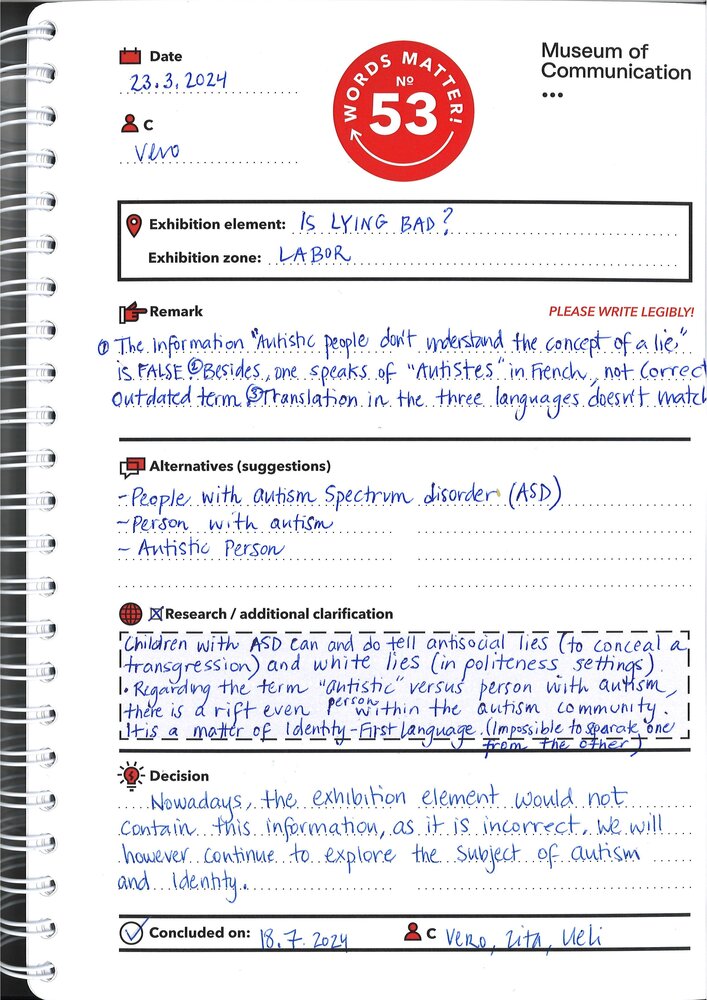 Date
23.3.2024
C
Vero
WORDS MATTER!
Nº
53
Museum of
Communication
Exhibition element: IS LYING BAD?
Exhibition zone: LABOR
Remark
PLEASE WRITE LEGIBLY!
① The information "Autistic people don't understand the concept of a lie,"
is FALSE ② Besides, one speaks of "Autistes" in French, not correct
Outdated term. ③ Translation in the three languages doesn't match
Alternatives (suggestions)
- People with autism Spectrum disorder (ASD)
- Person with autism
- Autistic Person
Research / additional clarification
Children with ASD can and do tell antisocial lies (to conceal a
transgression) and white lies (in politeness settings).
• Regarding the term "autistic" versus person with autism,
there is a rift even within the autism community.
person
It is a matter of Identity-First language. (Impossible to separate one
from the other)
Decision
Nowadays, the exhibition element would not
contain this information, as it is incorrect. We will
however continue to explore the subject of autism
and Identity.
Concluded on: 18.7.2024
C Vero, Zita, Ueli